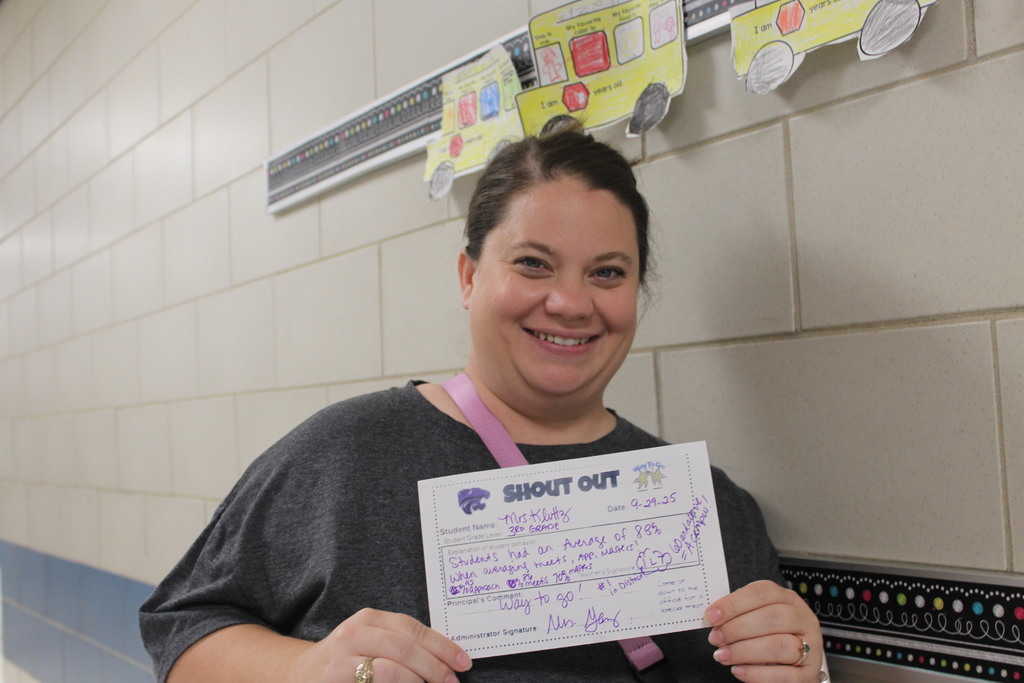 This is me.
My Favorite color is:
My Favorite food is
I am years old
I am years old
WAY TO GO
SHOUT OUT
Student Name: Mrs Kluttz Date: 9-29-25
Student Grade Level: 3RD GRADE
Explanation of student behavior:
Students had an Average of 88%
when averaging meets, App, Masters!
approach meets 70% masters
Teacher's Signature
Principal's Comment: Way to go! #1 in District
Come on down to the office for a special treat!
Administrator Signature: Ms.